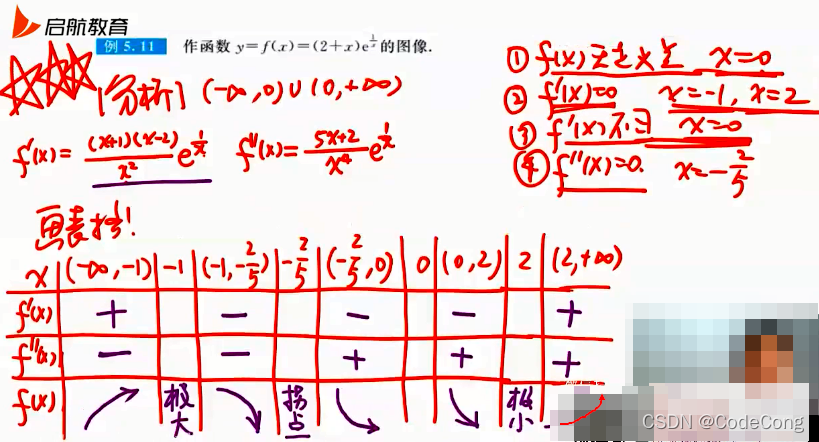 启航教育
例 5.11 作函数 y=f(x)=(2+x)e^{1/x} 的图像.
[分析] (-∞,0)∪(0,+∞)
f'(x)= (x+1)(x-2)/x² e^{1/x} f''(x)= 5x+2/x⁴ e^{1/x}
① f(x)无定义点 x=0
② f'(x)=0 x=-1, x=2
③ f'(x)不∃ x=0
④ f''(x)=0. x=-2/5
画表格!
x (-∞,-1) -1 (-1,-2/5) -2/5 (-2/5,0) 0 (0,2) 2 (2,+∞)
f'(x) + - - - +
f''(x) - - + + +
f(x) 极大 拐点 极小
CSDN @CodeCong